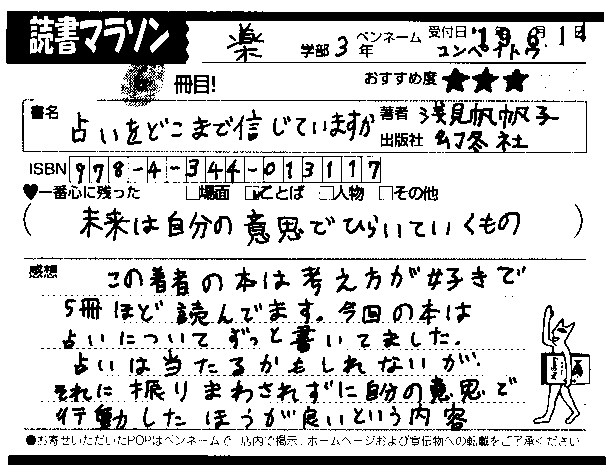 読書マラソン 薬 学部 3 年 ペンネーム コンペイトウ 受付日 '19 6月 14日
冊目! おすすめ度 ★★★
書名 占いをどこまで信じていますか 著者 浅見帆帆子
出版社 幻冬社
ISBN 978-4-344-013117
♥一番心に残った □場面 ☑ことば □人物 □その他
(未来は自分の意思でひらいていくもの)
感想 この著者の本は考え方が好きで
5冊ほど読んでます。今回の本は
占いについてずっと書いてました。
占いは当たるかもしれないが、
それに振りまわされずに自分の意思で
行動したほうが良いという内容
●お寄せいただいたPOPはペンネームで、店内で掲示、ホームページおよび宣伝物への転載をご了承ください